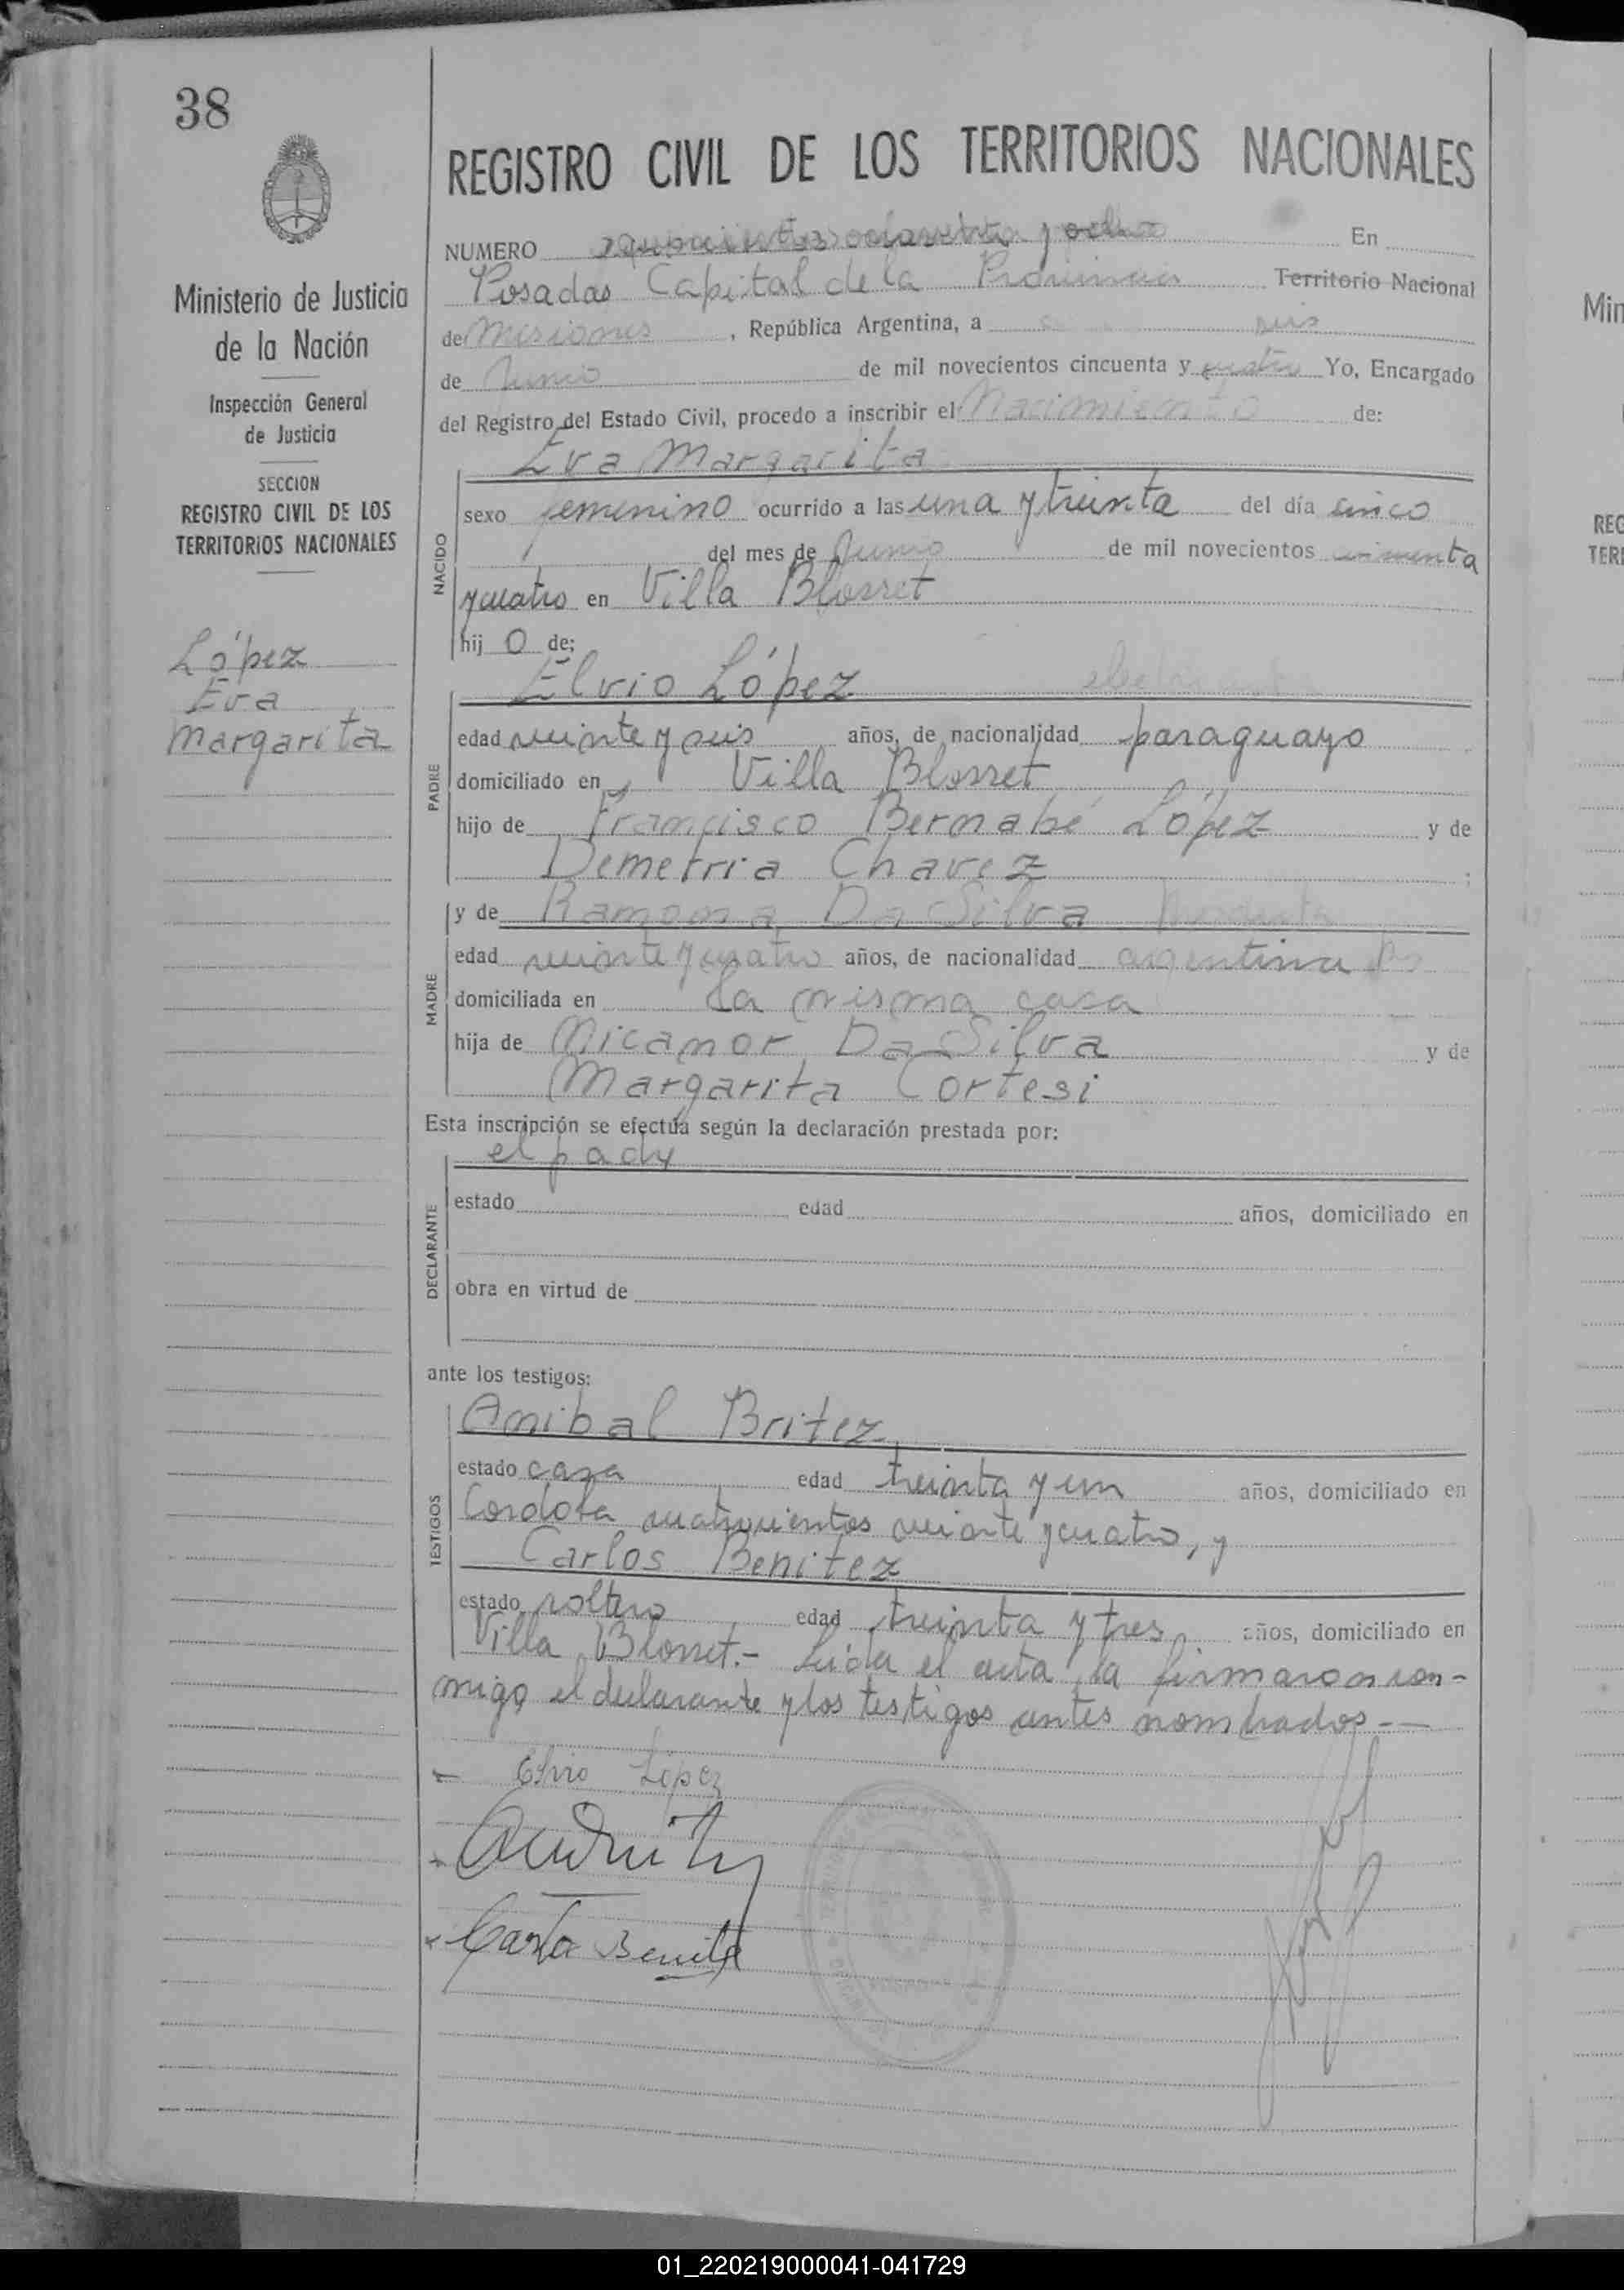 38
REGISTRO CIVIL DE LOS TERRITORIOS NACIONALES
Ministerio de Justicia
de la Nación
Inspección General
de Justicia
SECCION
REGISTRO CIVIL DE LOS
TERRITORIOS NACIONALES
López
Eva
Margarita
NUMERO y ocho En
Posadas Capital de la Provincia Territorio Nacional
de Misiones, República Argentina, a seis
de Junio de mil novecientos cincuenta y cuatro Yo, Encargado
del Registro del Estado Civil, procedo a inscribir el Nacimiento de:
Eva Margarita
NACIDO
sexo femenino ocurrido a las una y treinta del día cinco
del mes de Junio de mil novecientos cincuenta
y cuatro en Villa Blosset
hij o de:
Elvio López
PADRE
edad veinte y seis años, de nacionalidad paraguayo
domiciliado en Villa Blosset
hijo de Francisco Bernabé López y de
Demetria Chavez ;
MADRE
y de Ramona Da Silva
edad veinte y cuatro años, de nacionalidad argentina
domiciliada en la misma casa
hija de Nicanor Da Silva y de
Margarita Cortesi
Esta inscripción se efectúa según la declaración prestada por:
el padre
DECLARANTE
estado edad años, domiciliado en
obra en virtud de
ante los testigos:
TESTIGOS
Anibal Britez
estado casa edad treinta y un años, domiciliado en
Cordoba cuatrocientos veinte y cuatro, y
Carlos Benitez
estado soltero edad treinta y tres años, domiciliado en
Villa Blosset.- Leida el acta la firmaron con-
migo el declarante y los testigos antes nombrados.-
Elvio López
Benitez
Min
REG
TERR
01_220219000041-041729